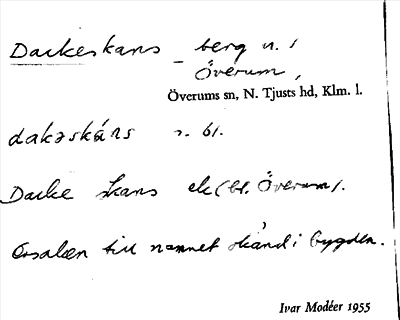 Dackeskans berg n. l
Överum,
Överums sn, N. Tjusts hd, Klm. l.
dakəskáns n. bl.
Dacke skans ek (bl. Överum).
Orsaken till namnet okänd i bygden.
Ivar Modéer 1955